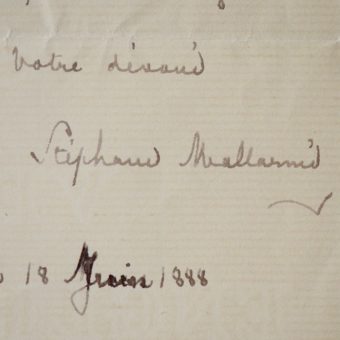 Votre dévoué
Stéphane Mallarmé
18 Juin 1888